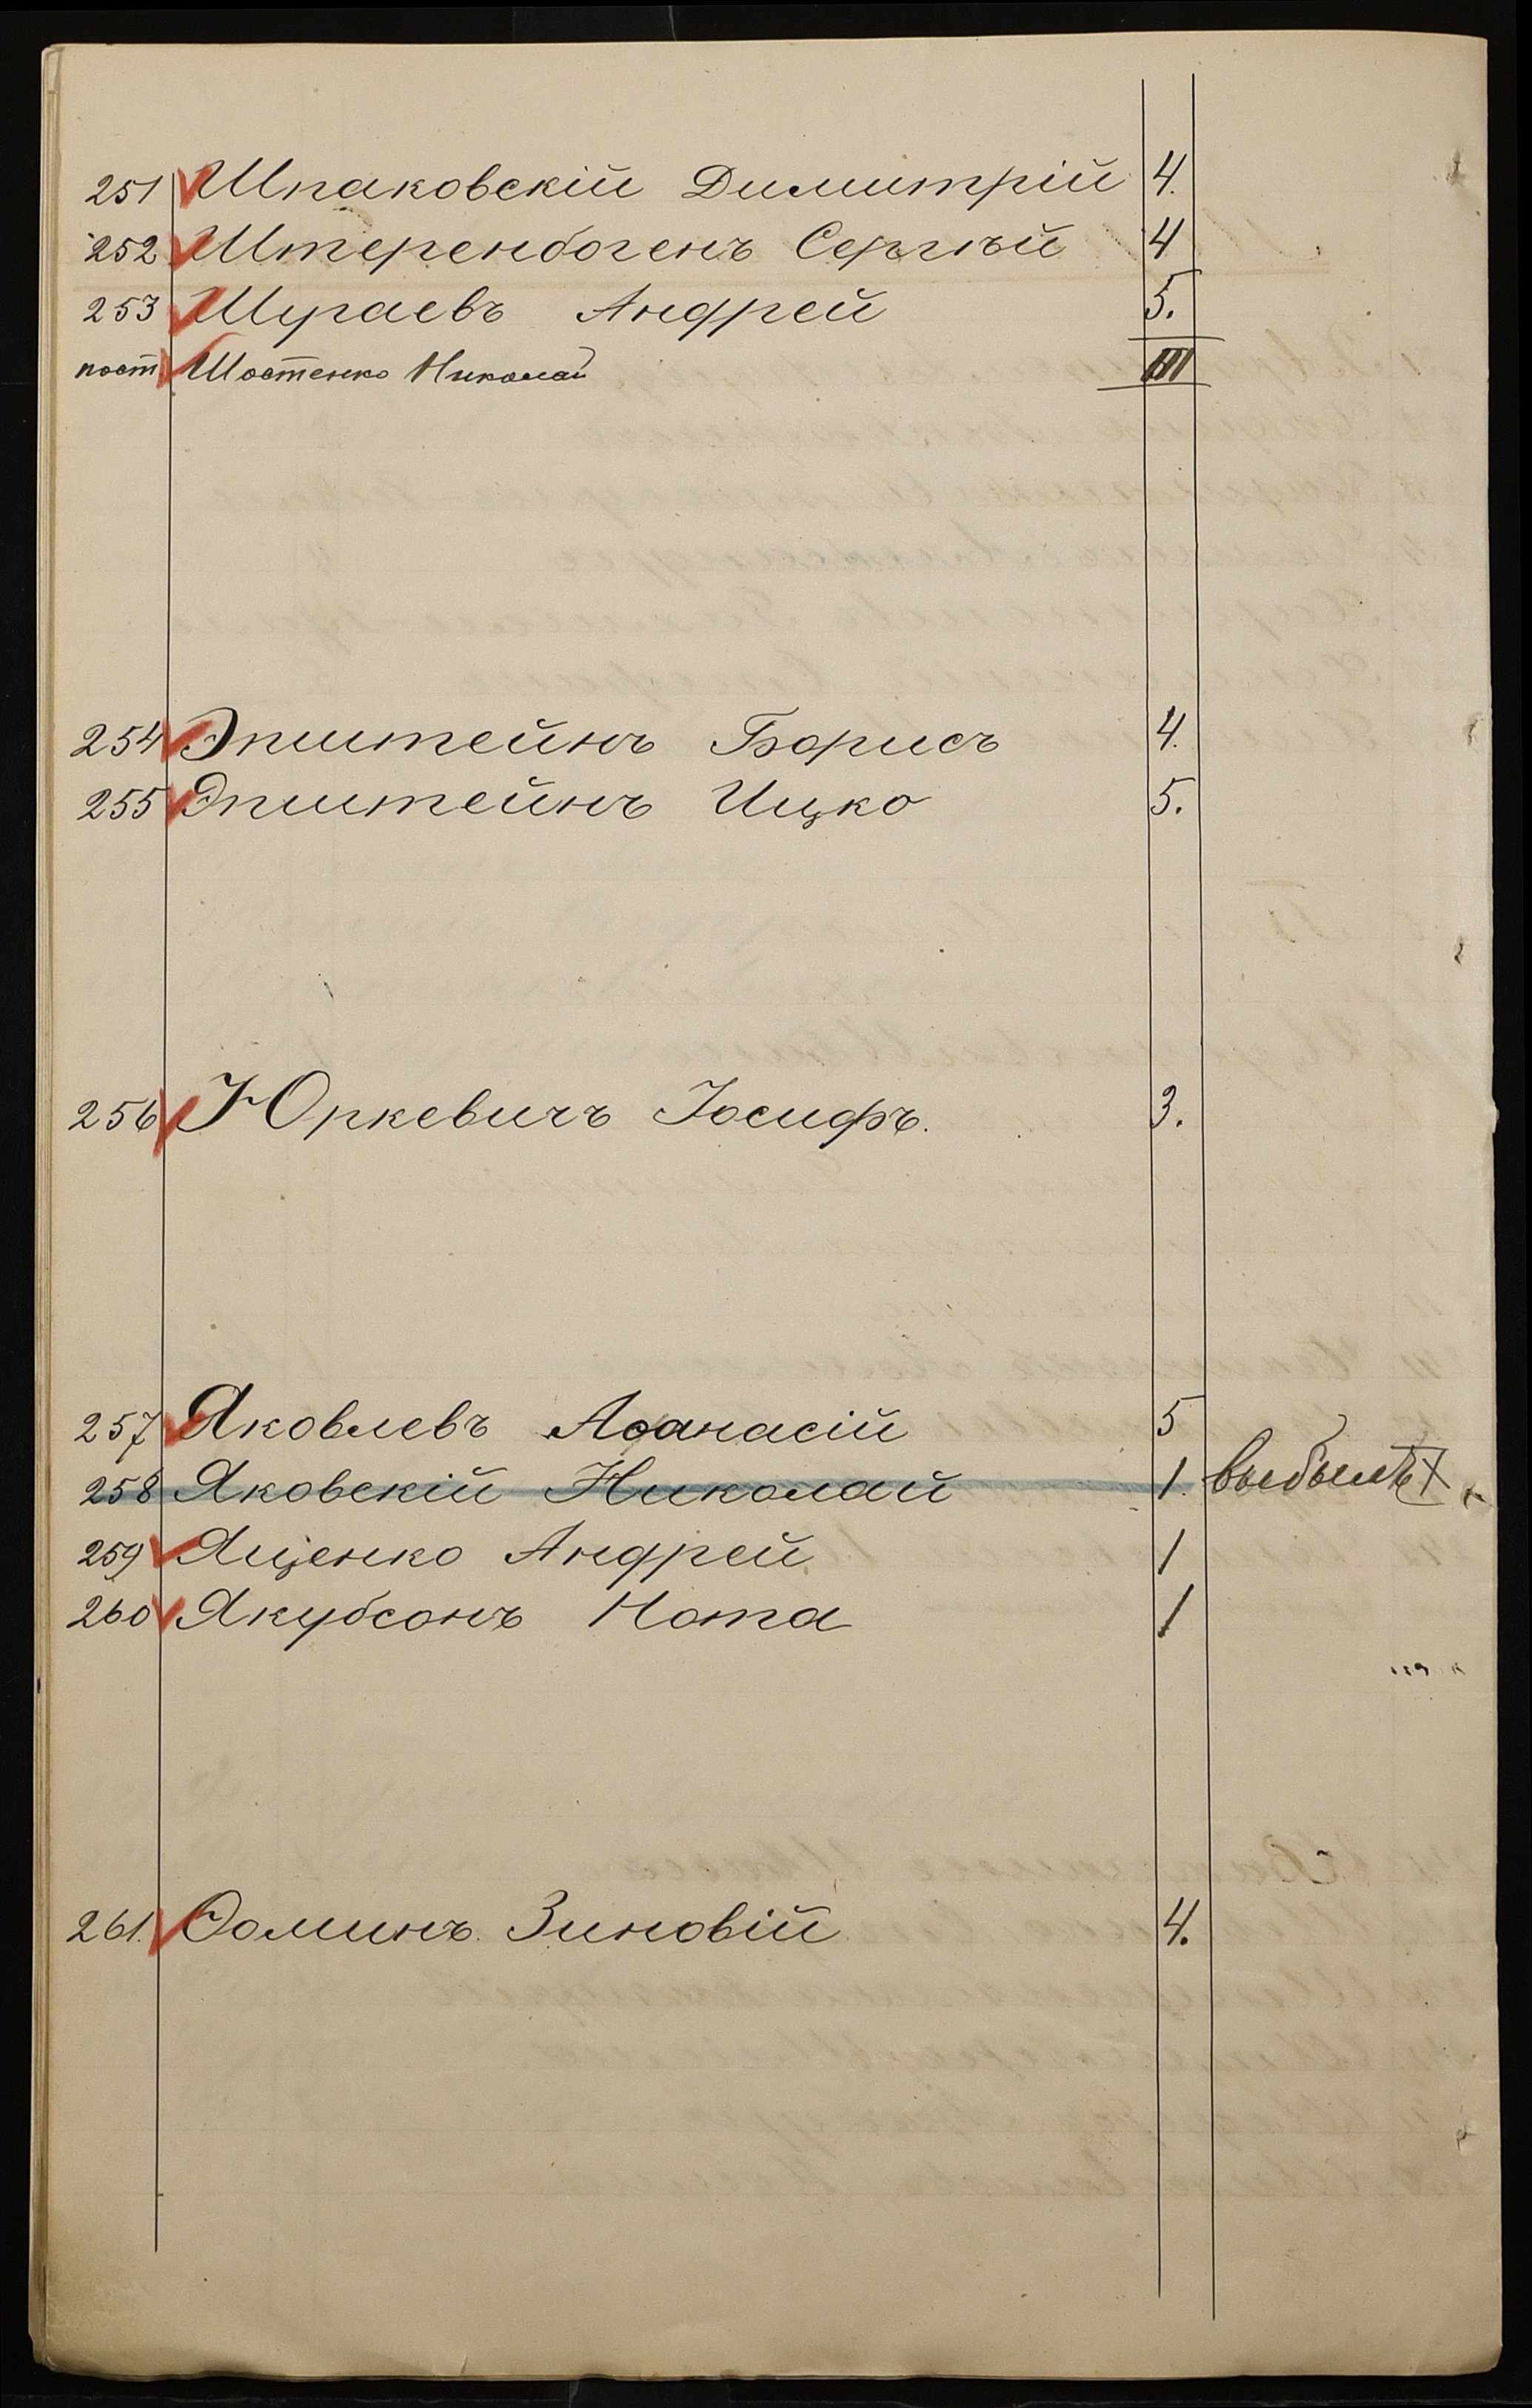 251 Шпаковскій Димитрій 4.
252 Штеренбогенъ Сергѣй 4
253 Шураевъ Андрей 5.
пост Шостенко Николай III
254 Эпштейнъ Борисъ 4.
255 Эпштейнъ Ицко 5.
256 Юркевичъ Іосифъ. 3.
257 Яковлевъ Аѳанасій 5
258 Яковскій Николай 1. выбылъ
259 Ященко Андрей 1
260 Якубсонъ Нота 1
261. Ѳоминъ Зиновій 4.